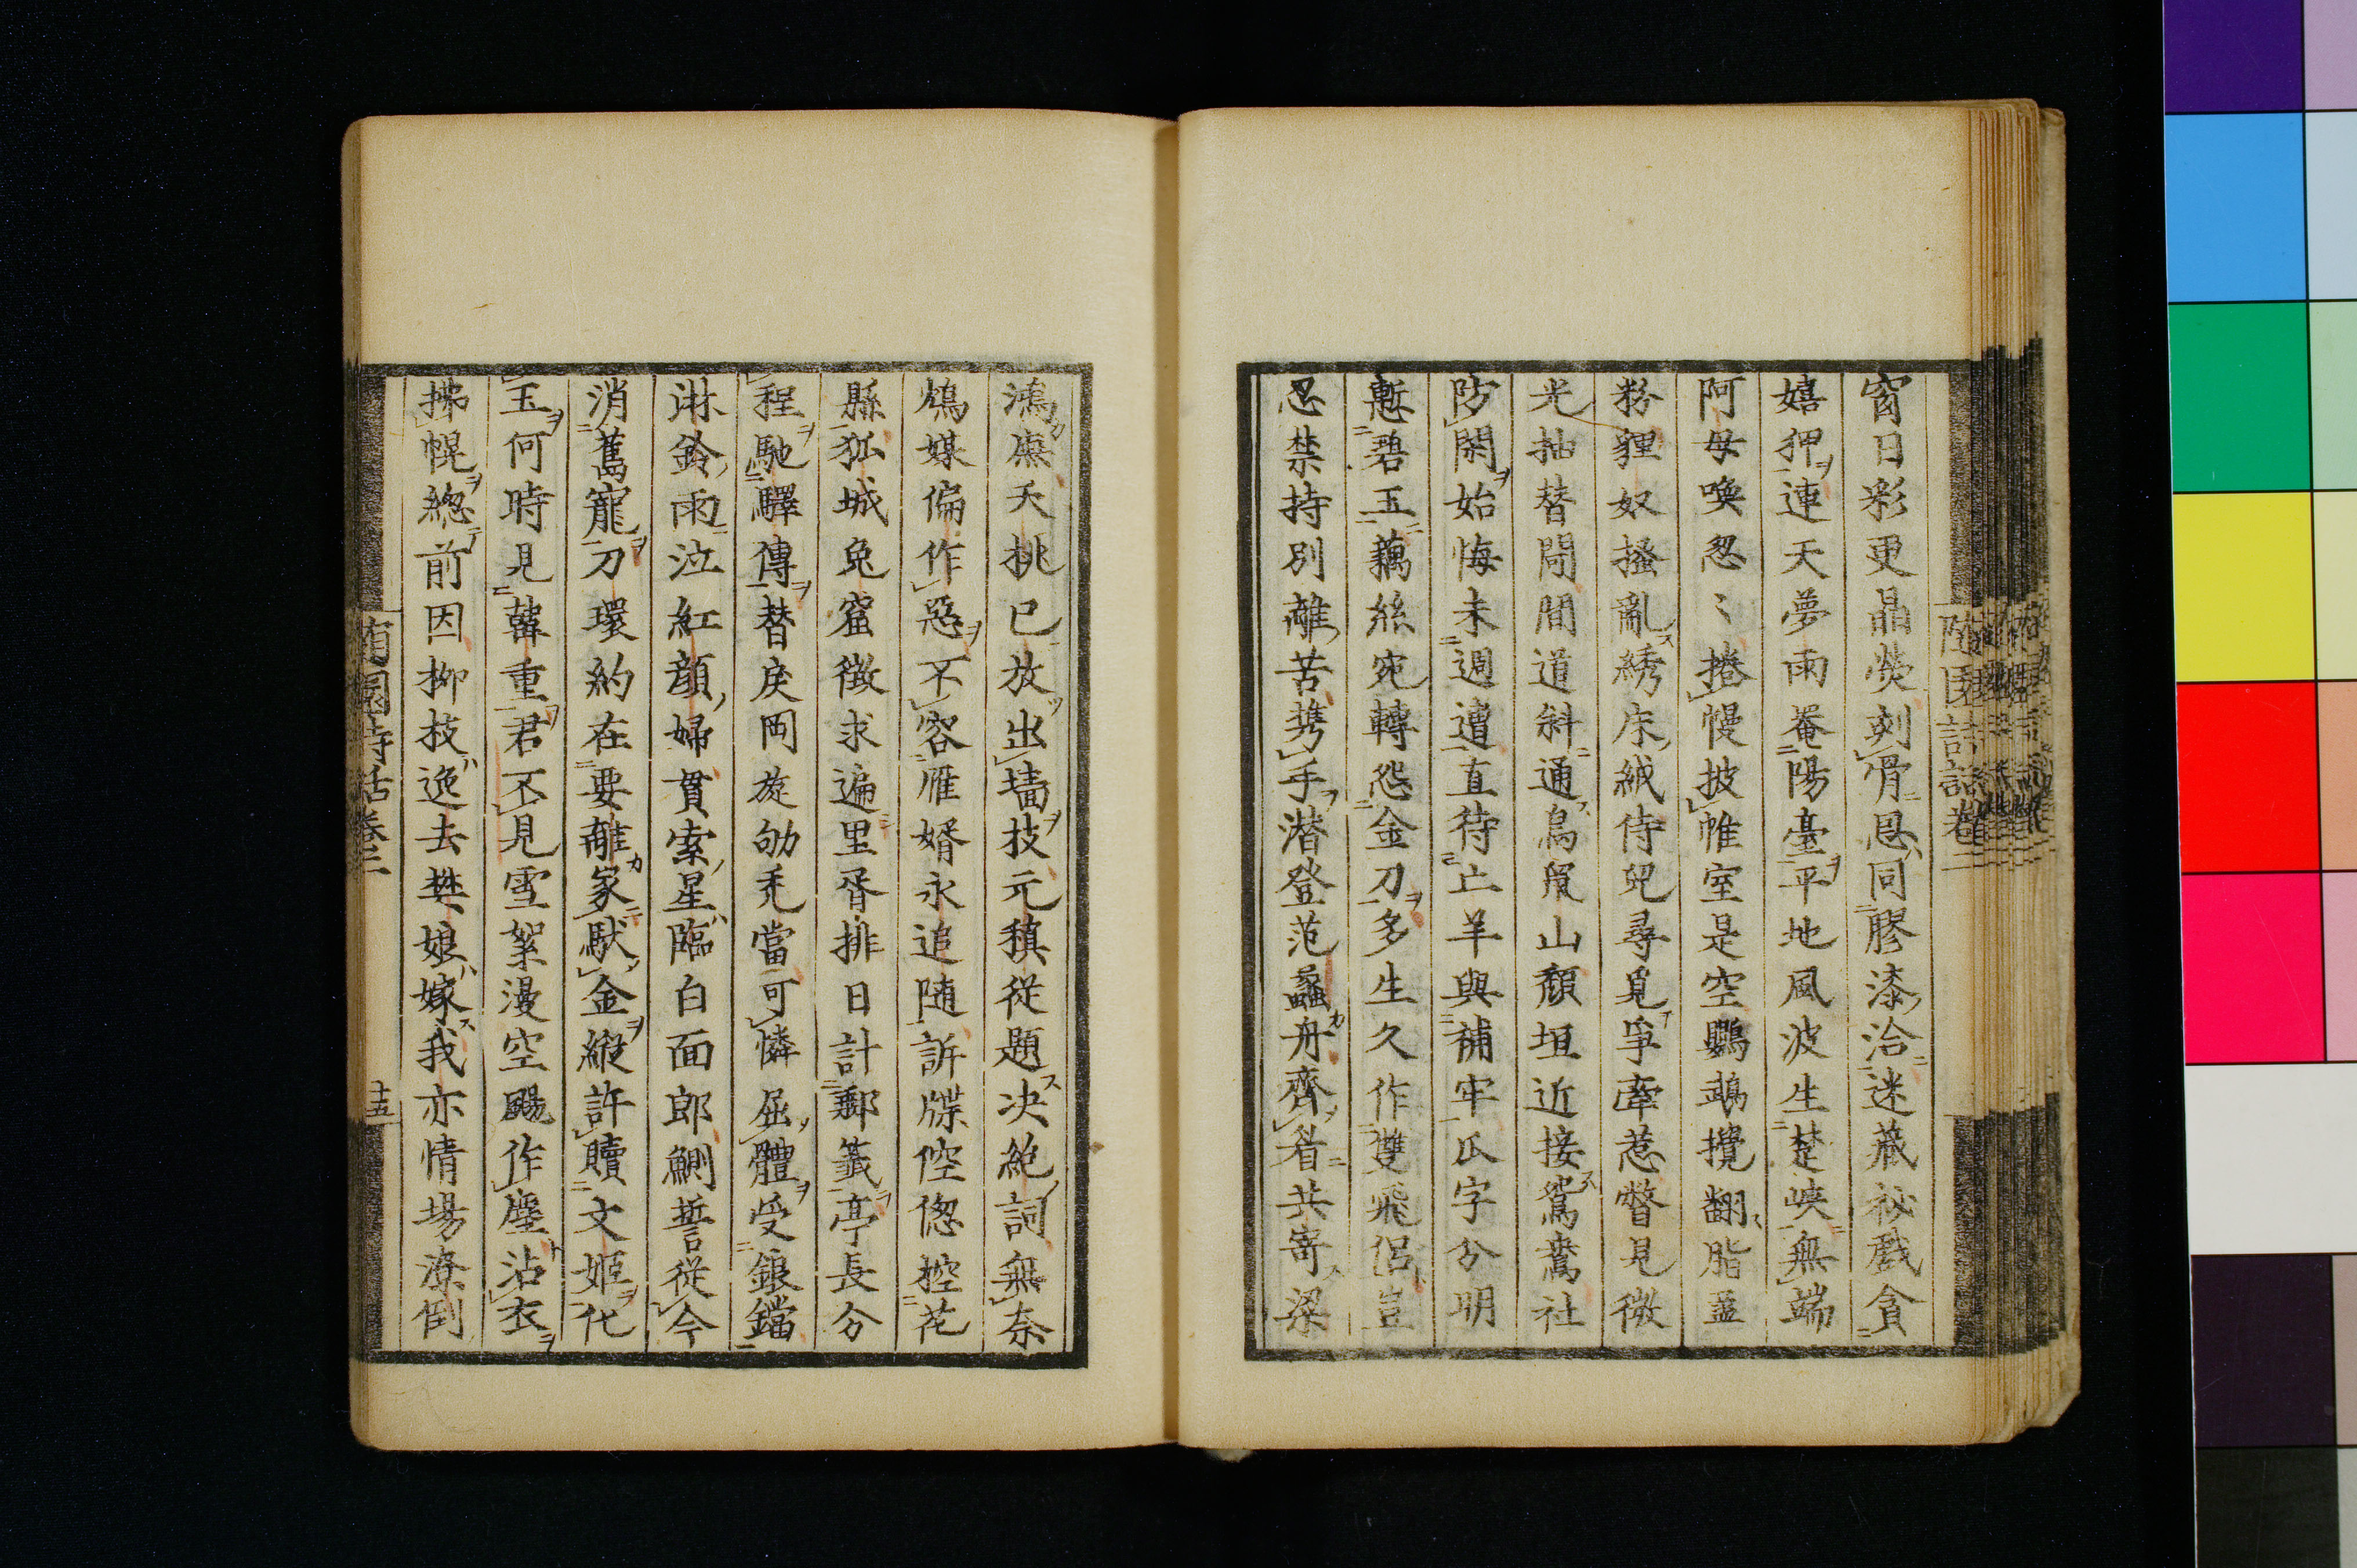 窗日彩更晶熒刻骨恩同膠漆洽迷藏祕戲貪
嬉狎連天夢雨菴陽臺平地風波生楚峽無端
阿母喚怱〻捲幔披帷室是空鸚鵡攪翻脂盝
粉貍奴搔亂綉床絨侍兒尋覓爭牽惹瞥見微
光抽替間間道斜通鳥鼠山頽垣近接鴛鴦社
防閑始悔未週遭直待亡羊與補牢瓜字分明
慙碧玉藕絲宛轉怨金刀多生久作雙飛侶豈
忍禁持别離苦携手潜登范蠡舟齊眉共寄梁
鴻廡夭桃已放出墻技元稹從題决絶詞無奈
鴆媒偏作惡不容雁婿永追随訴牒倥偬控花
縣狐城兔窟徵求遍里胥排日計郵籤亭長分
程馳驛傳替戾岡旋劬禿當可憐屈體受銀鐺
淋鈴雨泣紅顔婦貫索星臨白面郎鰂誓從今
消舊寵刀環約在要離家馱金縱許贖文姬化
玉何時見韓重君不見雪絮漫空颺作塵沾衣
拂幌總前因柳技逸去樊娘嫁我亦情場潦倒
随園詩話卷三
十五